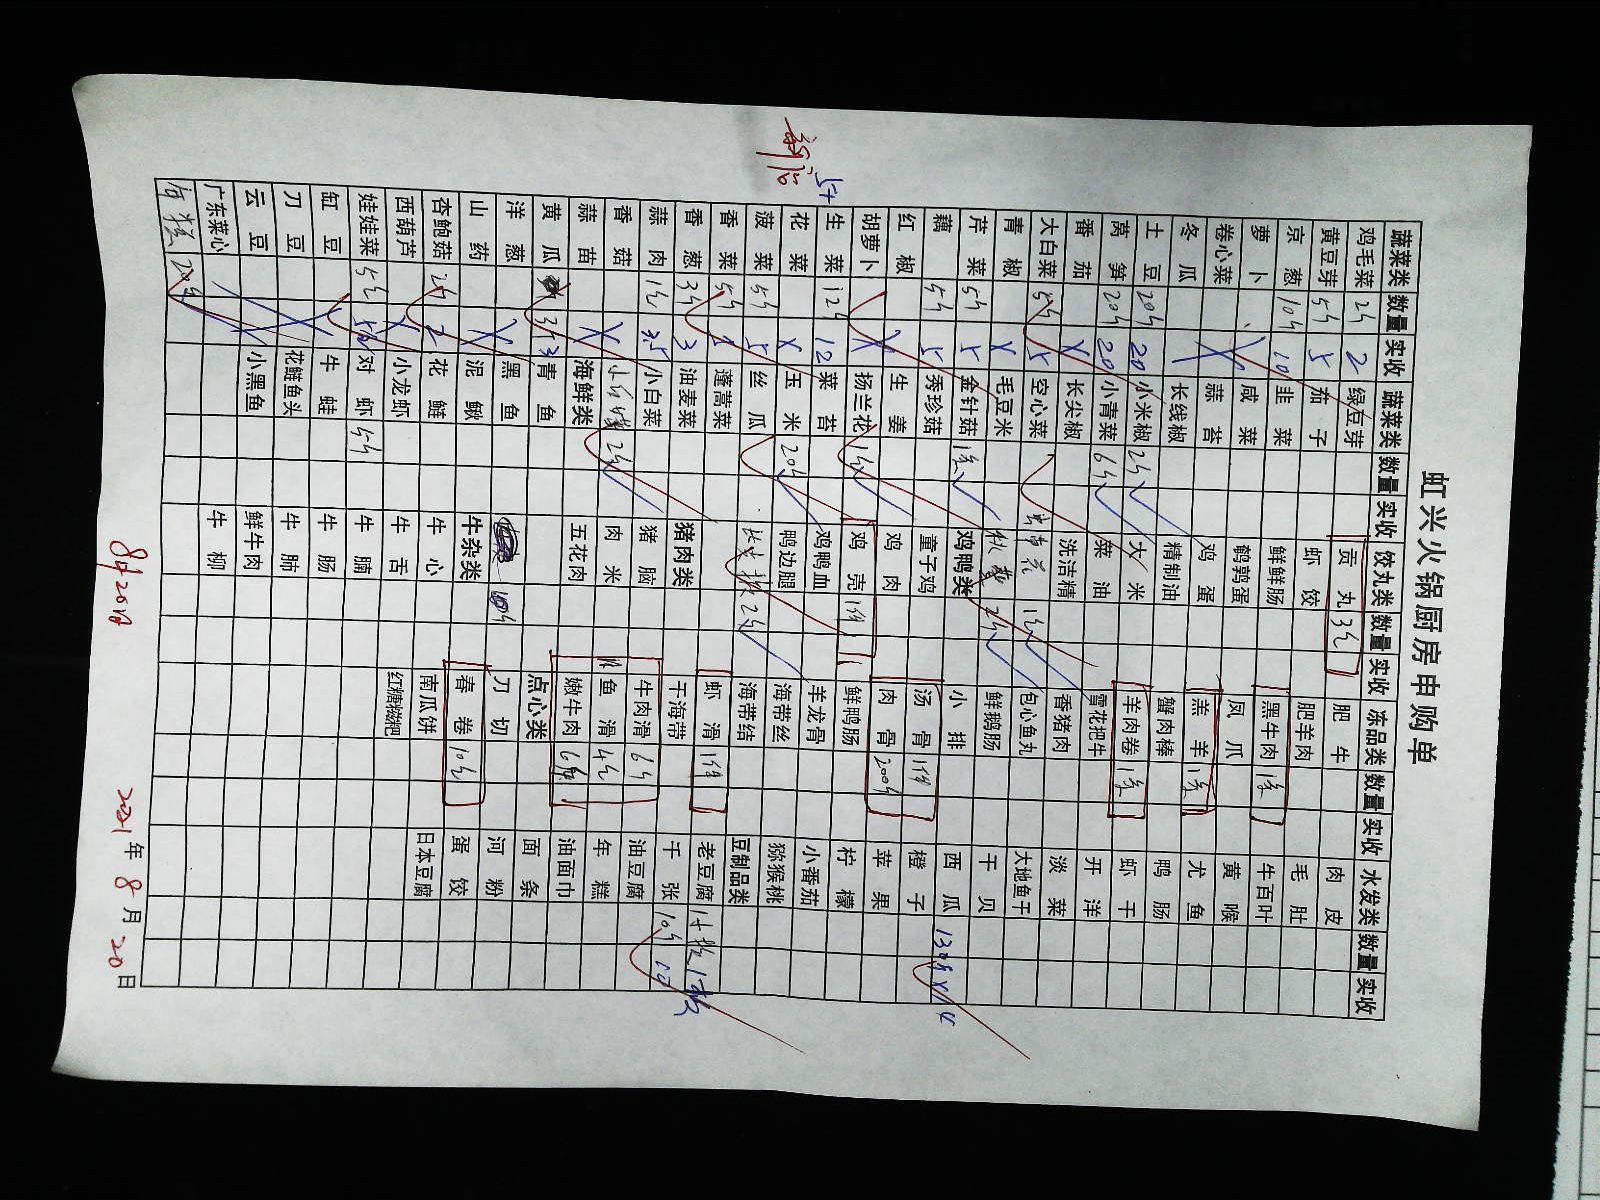 虹兴火锅厨房申购单
蔬菜类 数量 实收 蔬菜类 数量 实收 饺丸类 数量 实收 冻品类 数量 实收 水发类 数量 实收
鸡毛菜 2斤 2 绿豆芽 贡丸 3包 肥牛 肉皮
黄豆芽 5斤 5 茄子 虾饺 肥羊肉 毛肚
京葱 10斤 10 韭菜 鲜鲜肠 黑牛肉 1条 牛百叶
萝卜 咸菜 鹌鹑蛋 凤爪 黄喉
卷心菜 X 蒜苔 鸡蛋 羔羊 1条 尤鱼
冬瓜 长线椒 精制油 蟹肉棒 鸭肠
土豆 20斤 20 小米椒 2斤 大米 羊肉卷 1条 虾干
莴笋 20斤 20 小青菜 6斤 菜油 雪花把牛 开洋
番茄 X 长尖椒 洗洁精 香猪肉 淡菜
大白菜 5斤 5 空心菜 包心鱼丸 大地鱼干
青椒 X 毛豆米 秋葵 2斤 鲜鹅肠 干贝
芹菜 5斤 5 金针菇 1条 鸡鸭类 小排 西瓜 130斤 X 14
藕 5斤 5 秀珍菇 童子鸡 汤骨 1件 橙子
红椒 X 生姜 鸡肉 肉骨 200斤 苹果
胡萝卜 X 扬兰花 1斤 鸡壳 1件 鲜鸭肠 柠檬
生菜 12斤 12 菜苔 鸡鸭血 羊龙骨 小番茄
花菜 X 玉米 20斤 鸭边腿 海带丝 猕猴桃
菠菜 5斤 5 丝瓜 2斤 海带结 豆制品类
香菜 5斤 蓬蒿菜 虾滑 1件 老豆腐 1板 1板
香葱 3斤 3 油麦菜 猪肉类 干海带 千张 10斤 10
蒜肉 1包 3.5 小白菜 猪脑 牛肉滑 6包 油豆腐
香菇 X 2斤 肉米 鱼滑 4包 年糕
蒜苗 X 海鲜类 五花肉 嫩牛肉 6包 油面巾
黄瓜 3斤 3 青鱼 点心类 面条
洋葱 X 黑鱼 10斤 刀切 河粉
山药 X 泥鳅 牛杂类 春卷 10包 蛋饺
杏鲍菇 2斤 2 花鲢 牛心 南瓜饼 日本豆腐
西葫芦 X 小龙虾 牛舌 红糖糍粑
娃娃菜 5斤 5 对虾 5斤 牛腩
缸豆 牛蛙 牛肠
刀豆 花鲢鱼头 牛肺
云豆 小黑鱼 鲜牛肉
广东菜心 牛柳
8月20日
2021年8月20日